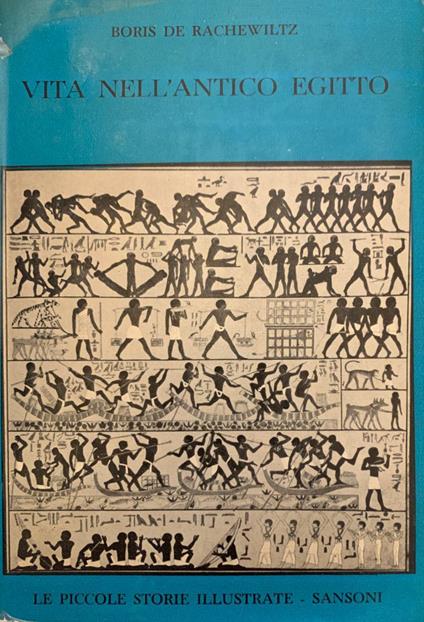 BORIS DE RACHEWILTZ
VITA NELL'ANTICO EGITTO
LE PICCOLE STORIE ILLUSTRATE - SANSONI